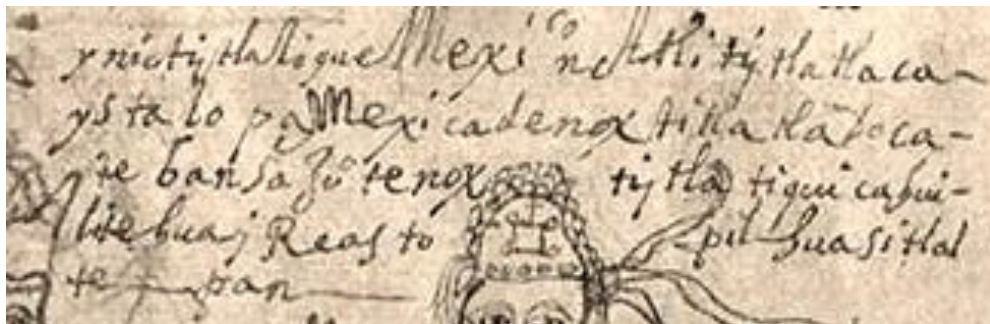 ynictÿtlalique Mexico ncatlitÿtlatlaca-
ystalo pa Mexicadenox titlatlatoca-
te bansaJuo tenox tÿtla tiquicahui-
litehuaj Reasto pilhuasitlal
te pan